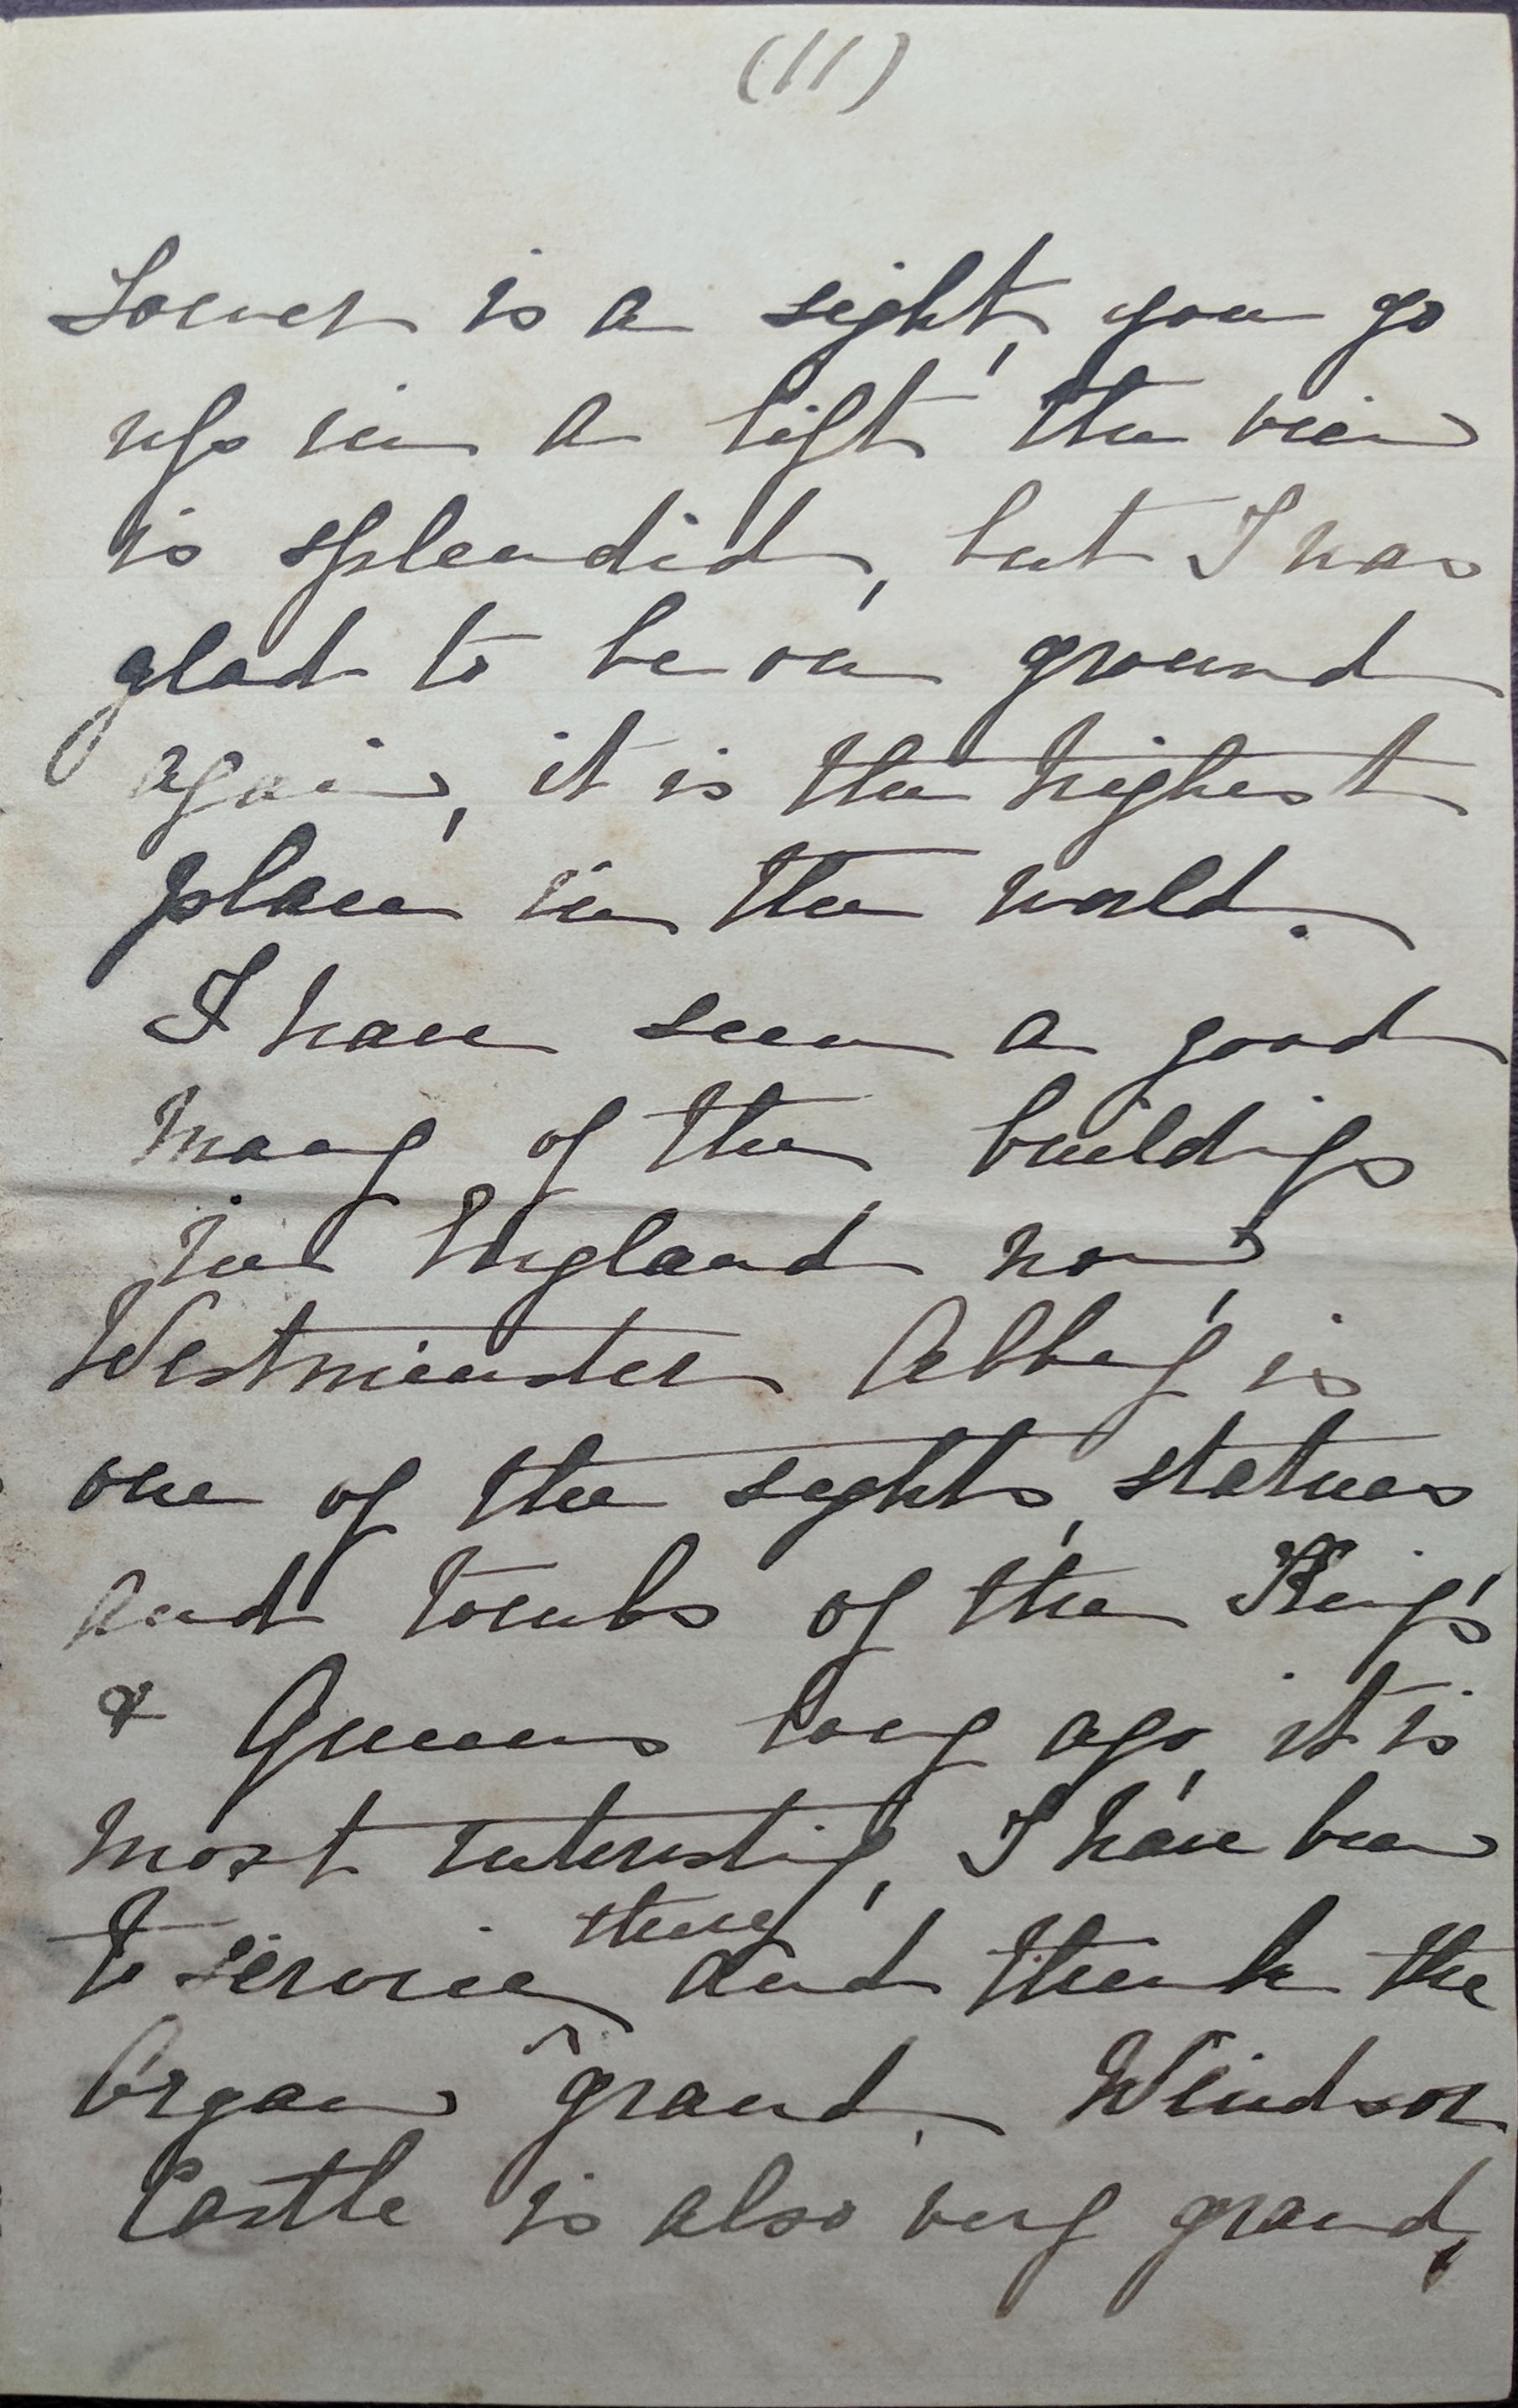 (11)
Tower is a sight, you go
up in a lift the view
is splendid, but I was
glad to be on ground
again, it is the highest
place in the world.
I have seen a good
many of the buildings
in England now,
Westminster Abbey is
one of the sights, statues
and tombs of the King's
& Queens long ago, it is
most interesting, I have been
there
to service, and think the
Organ grand, Windsor
Castle is also very grand,